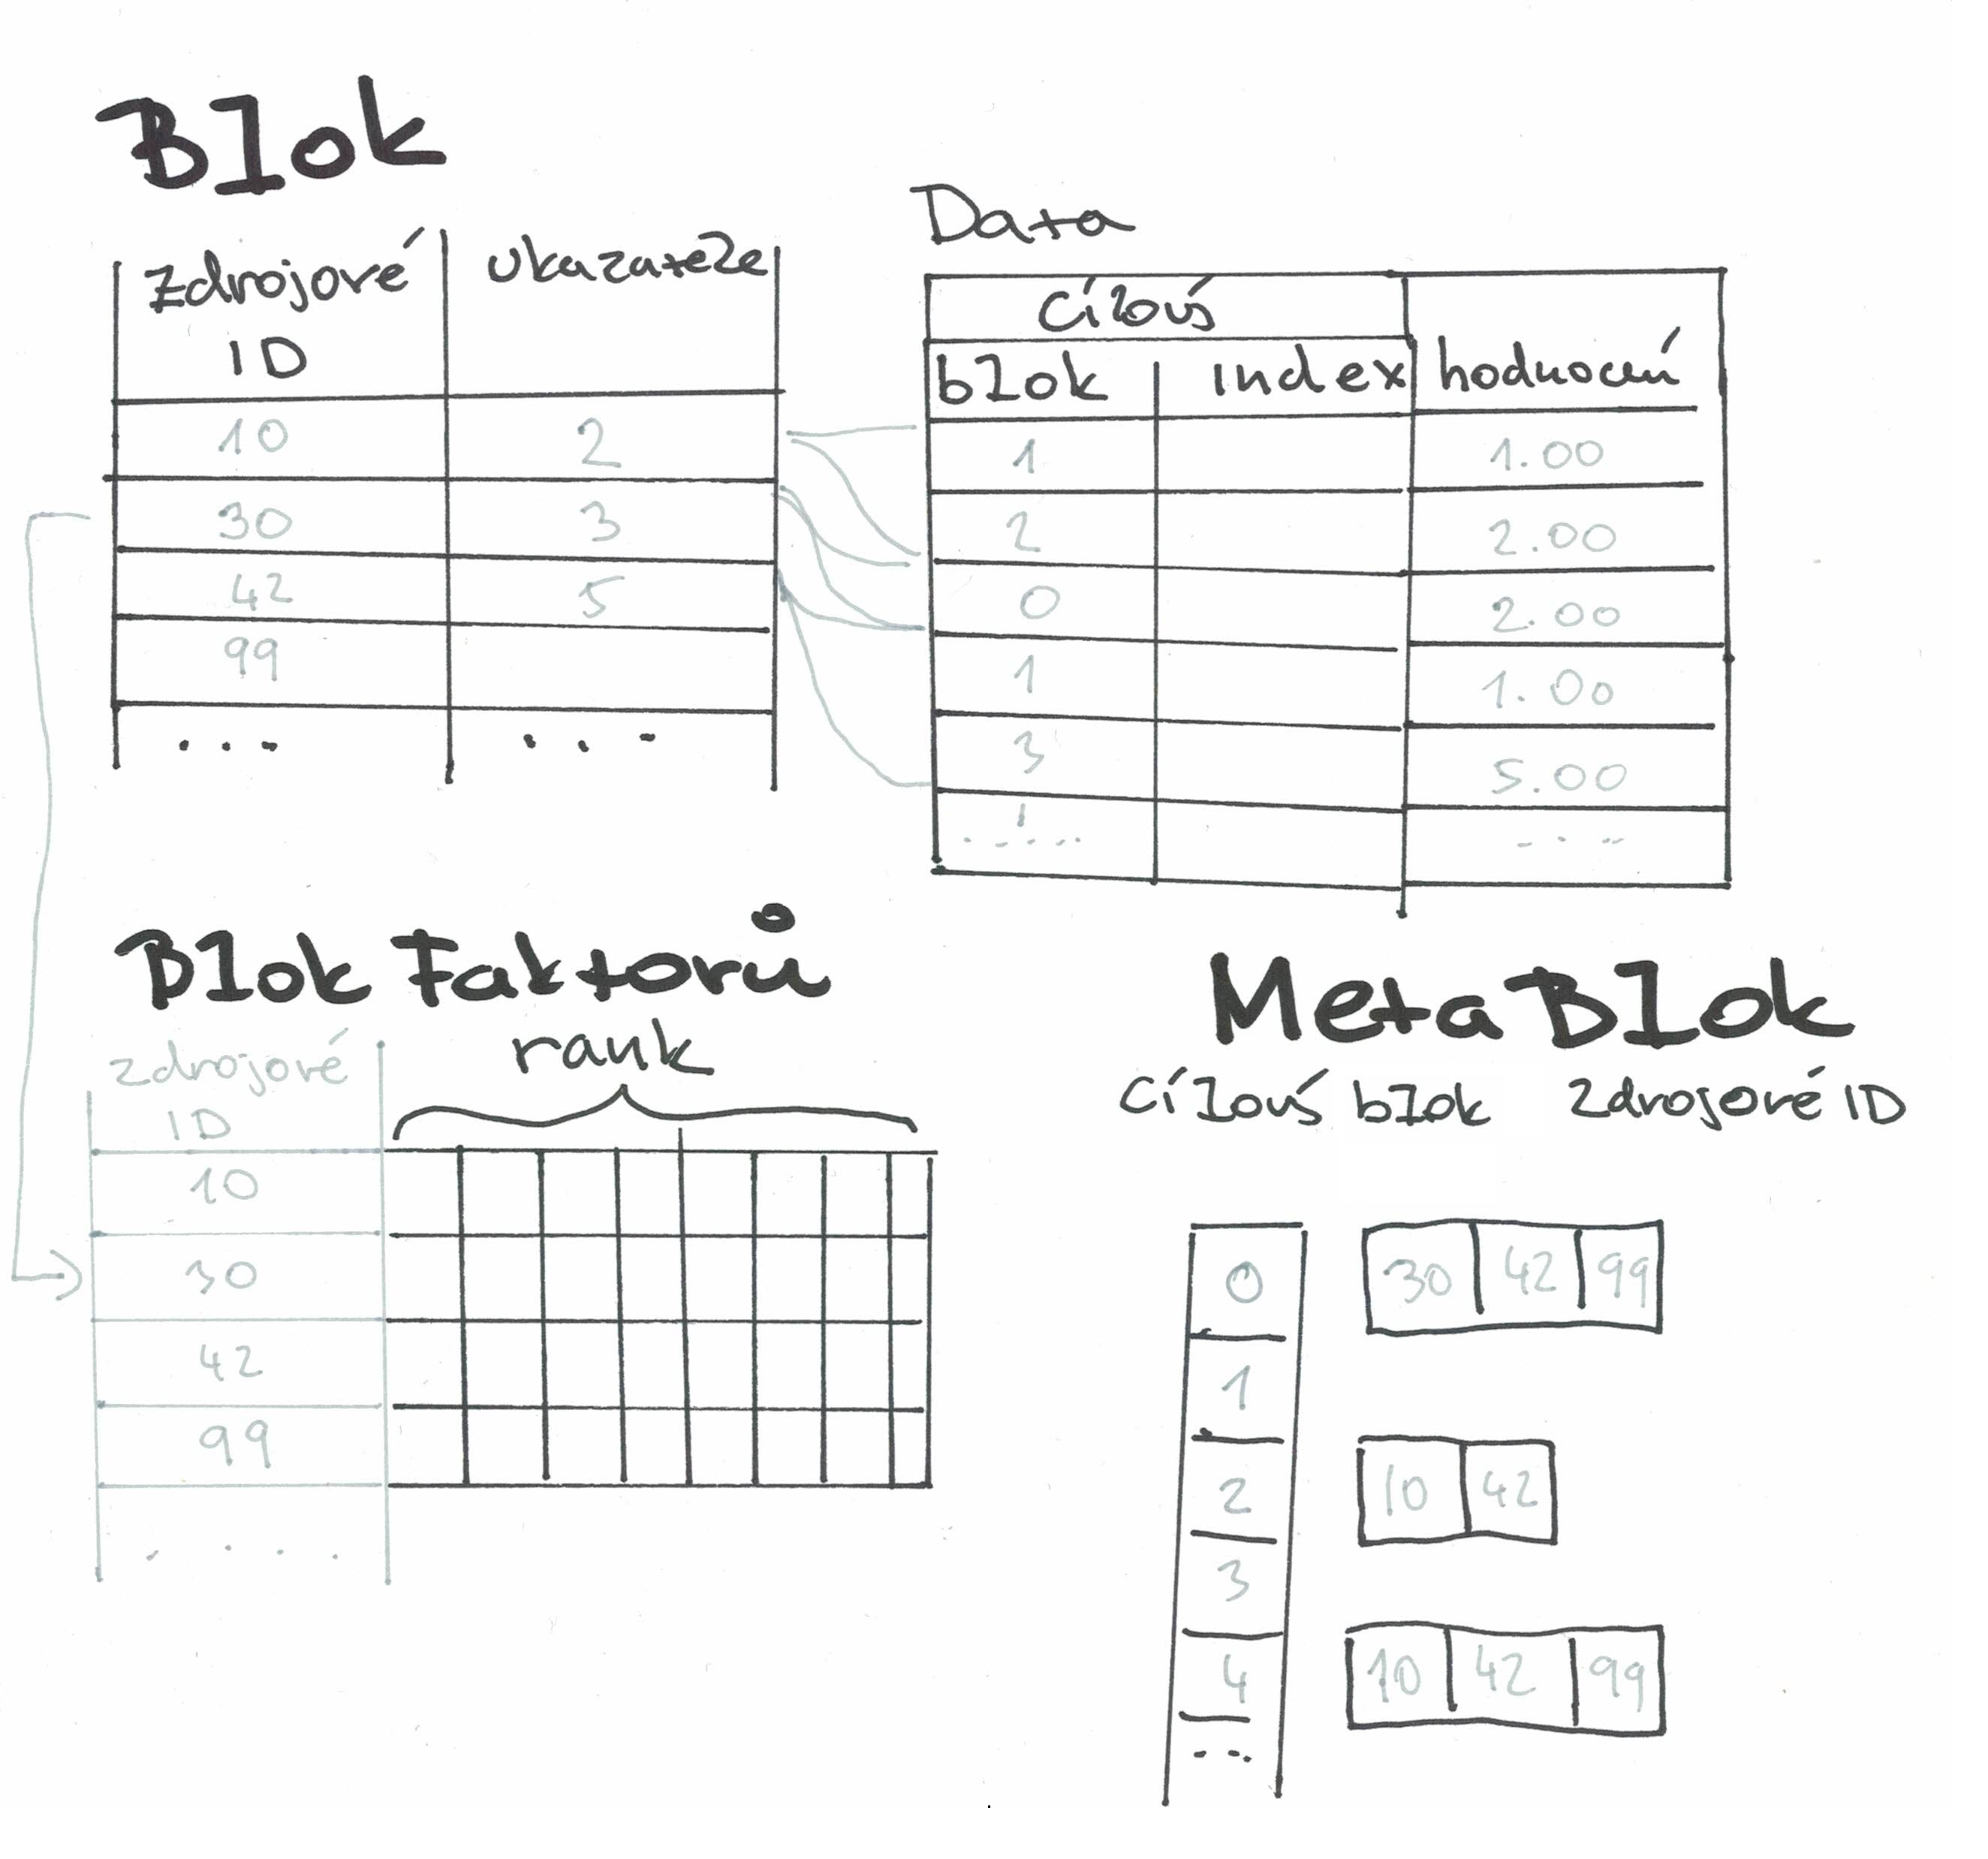 Blok
zdrojové ukazatele
ID
10 2
30 3
42 5
99
... ...
Data
cílový
blok index hodnocení
1 1.00
2 2.00
0 2.00
1 1.00
3 5.00
..... ....
Blok Faktorů
rank
zdrojové
ID
10
30
42
99
....
Meta Blok
cílový blok zdrojové ID
0 30 42 99
1
2 10 42
3
4 10 42 99
...